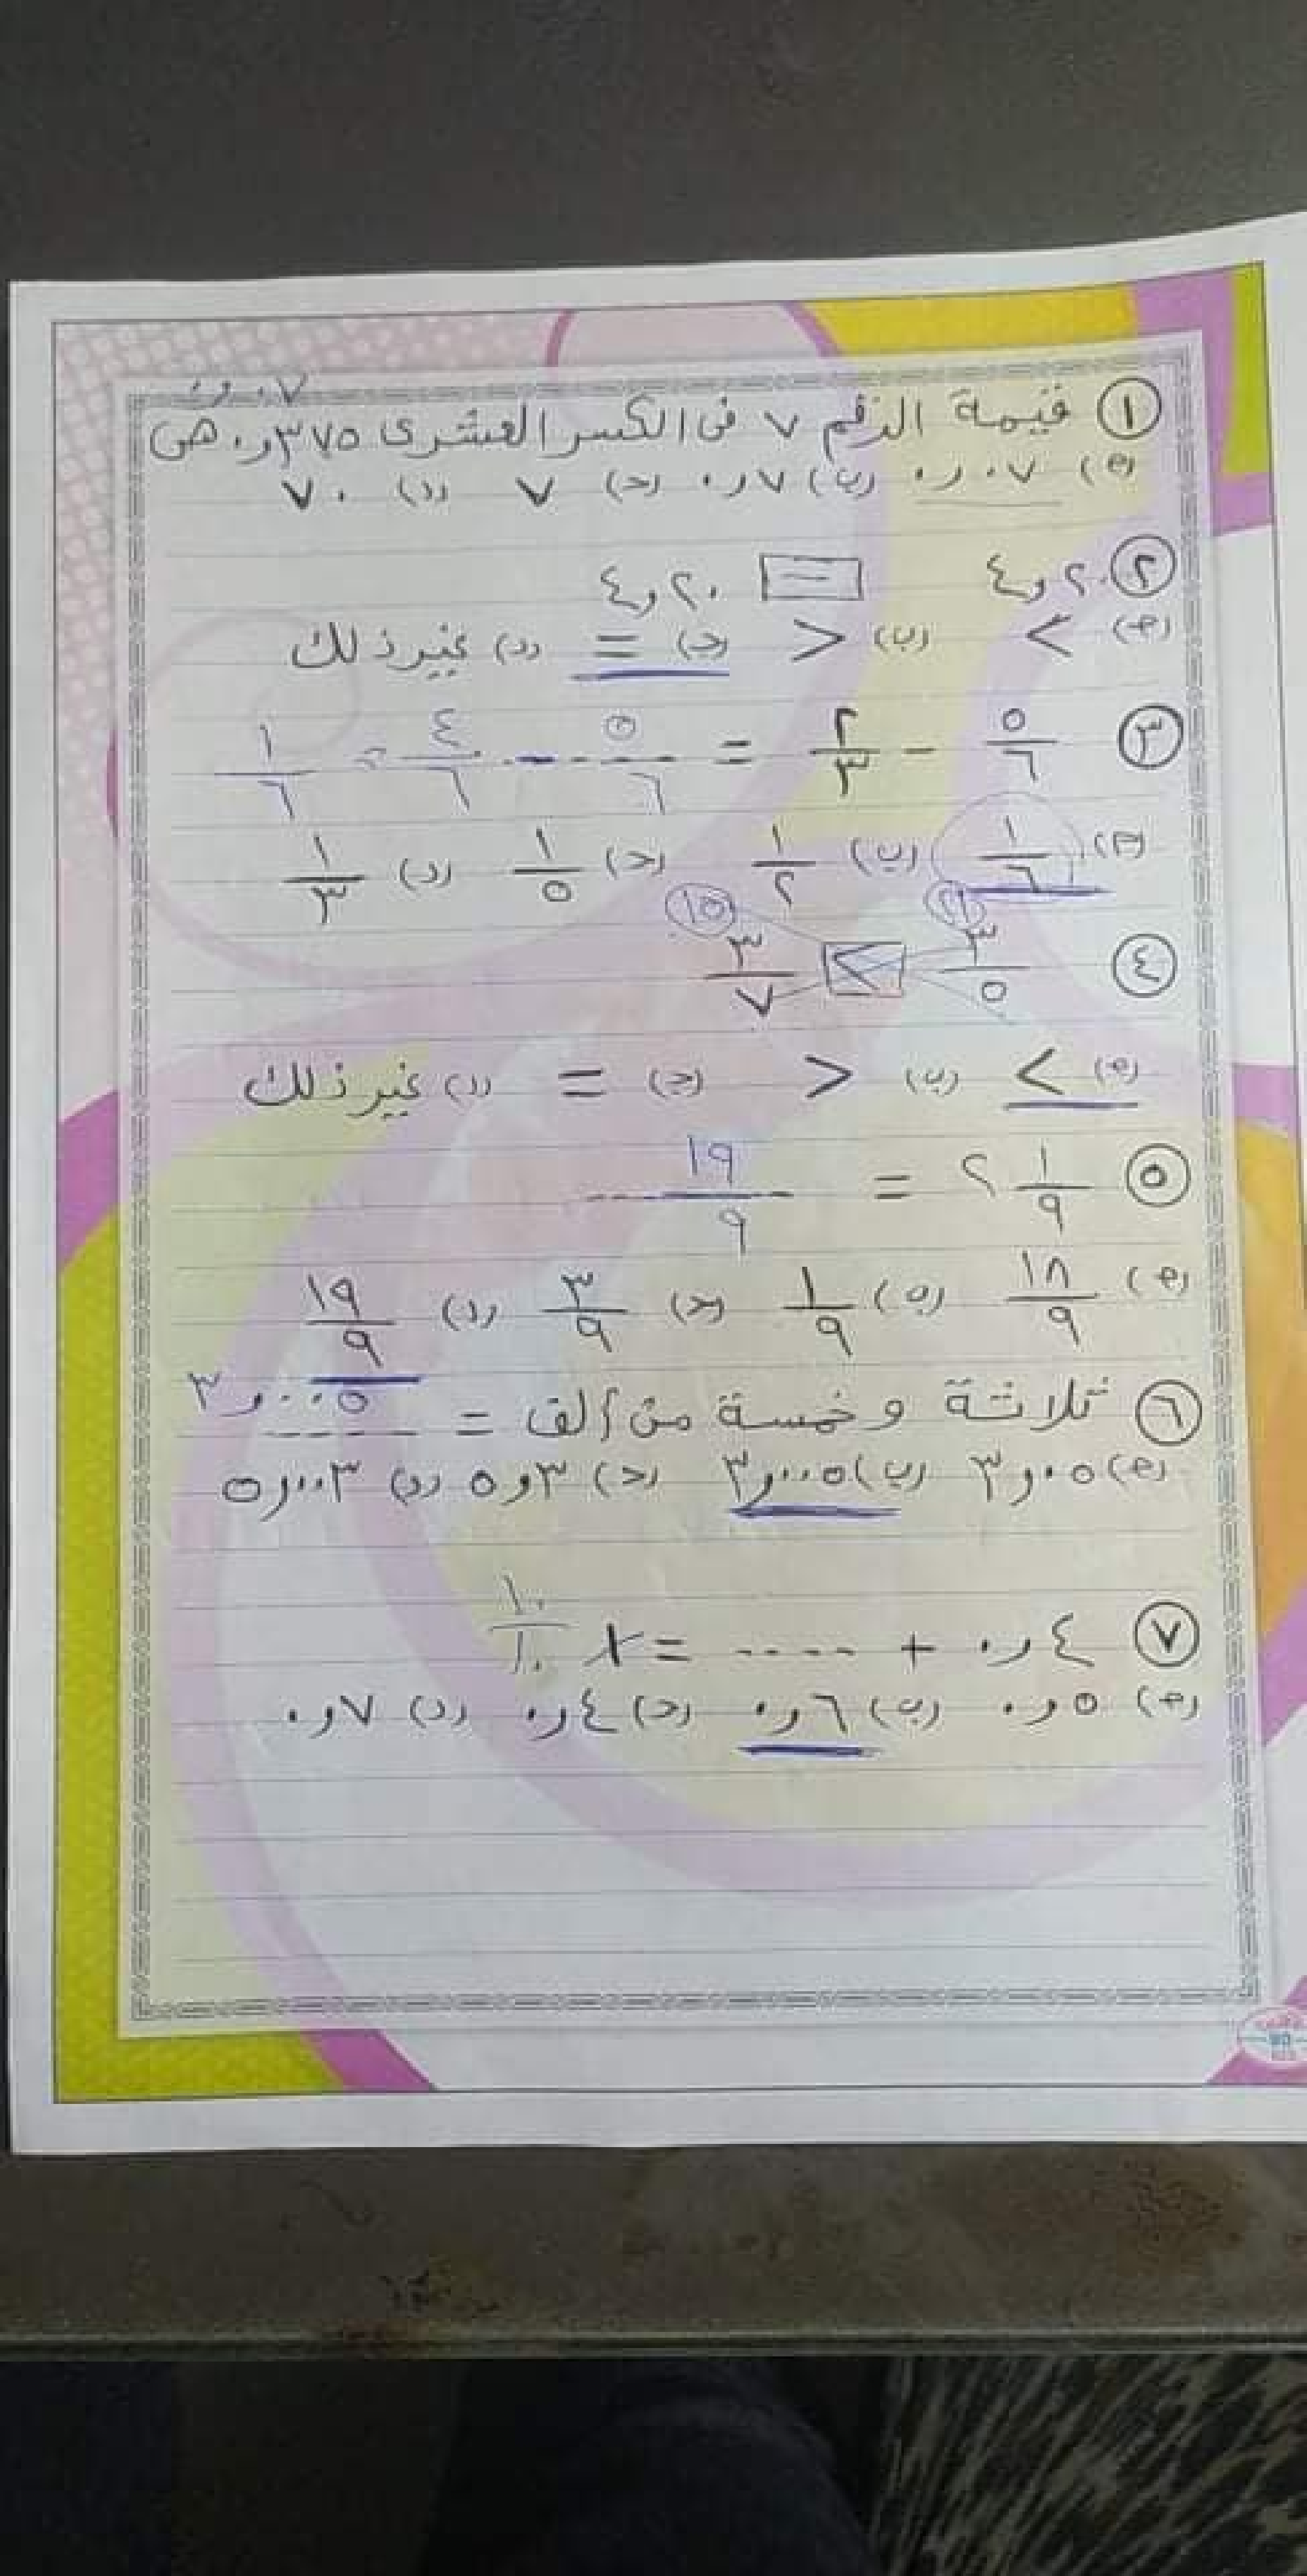 ٠,٠٧
① قيمة الرقم ٧ فى الكسر العشرى ٠,٣٧٥ هى
(م) ٠,٠٧ (ب) ٠,٧ (ج) ٧ (د) ٧٠
② ٤,٢٠ = ٤,٢٠
(م) > (ب) < (ج) = (د) غير ذلك
③ ٥/٦ - ٢/٣ = ٥/٦ - ٤/٦ = ١/٦
(م) ١/٦ (ب) ١/٢ (ج) ١/٥ (د) ١/٣
٢١ ١٥
④ ٣/٥ > ٣/٧
(م) > (ب) < (ج) = (د) غير ذلك
⑤ ٢ ١/٩ = ١٩/٩
(م) ١٨/٩ (ب) ١/٩ (ج) ٣/٩ (د) ١٩/٩
⑥ ثلاثة وخمسة من ألف = ٣,٠٠٥
(م) ٣,٠٥ (ب) ٣,٠٠٥ (ج) ٥,٣ (د) ٥,٠٠٣
⑦ ٠,٤ + .... = ١ ١٠/١٠
(م) ٠,٥ (ب) ٠,٦ (ج) ٠,٤ (د) ٠,٧